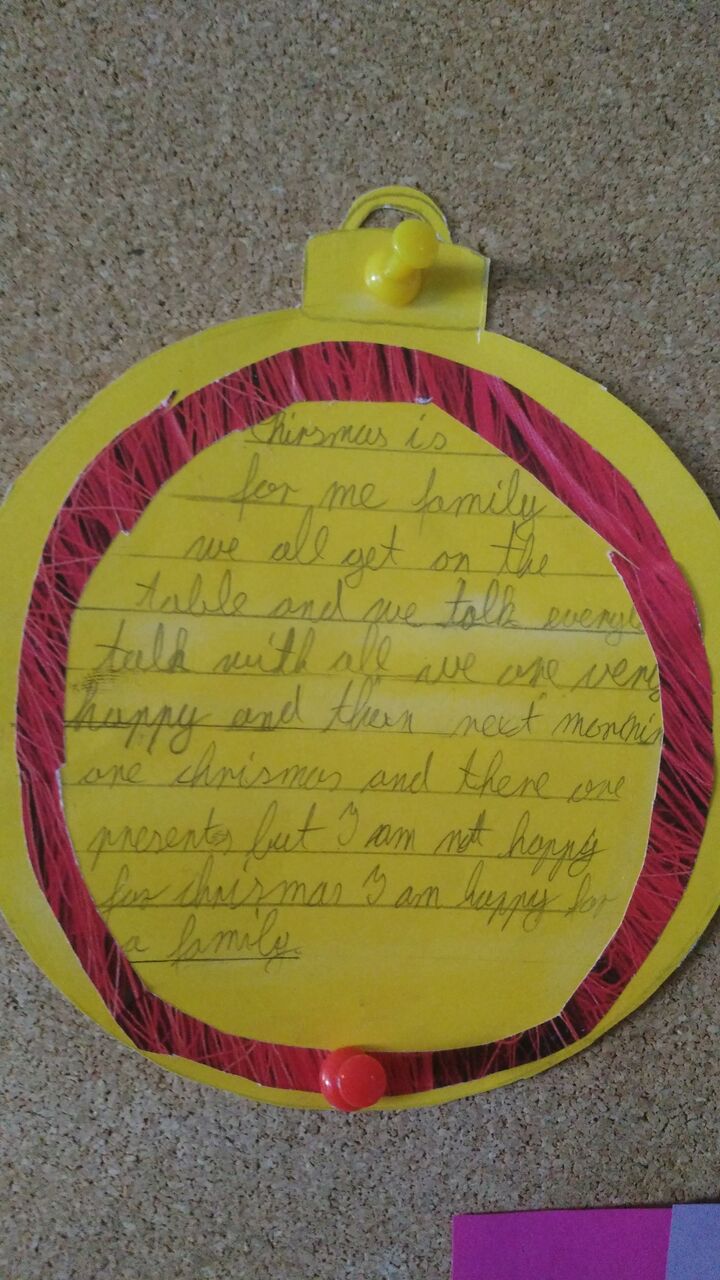 Chirsmas is
for me family
we all get on the
table and we talk everyb
talk with all we are very
happy and then next mornin
are chrismas and there are
presents but I am not happy
for chrismas I am happy for
a family.